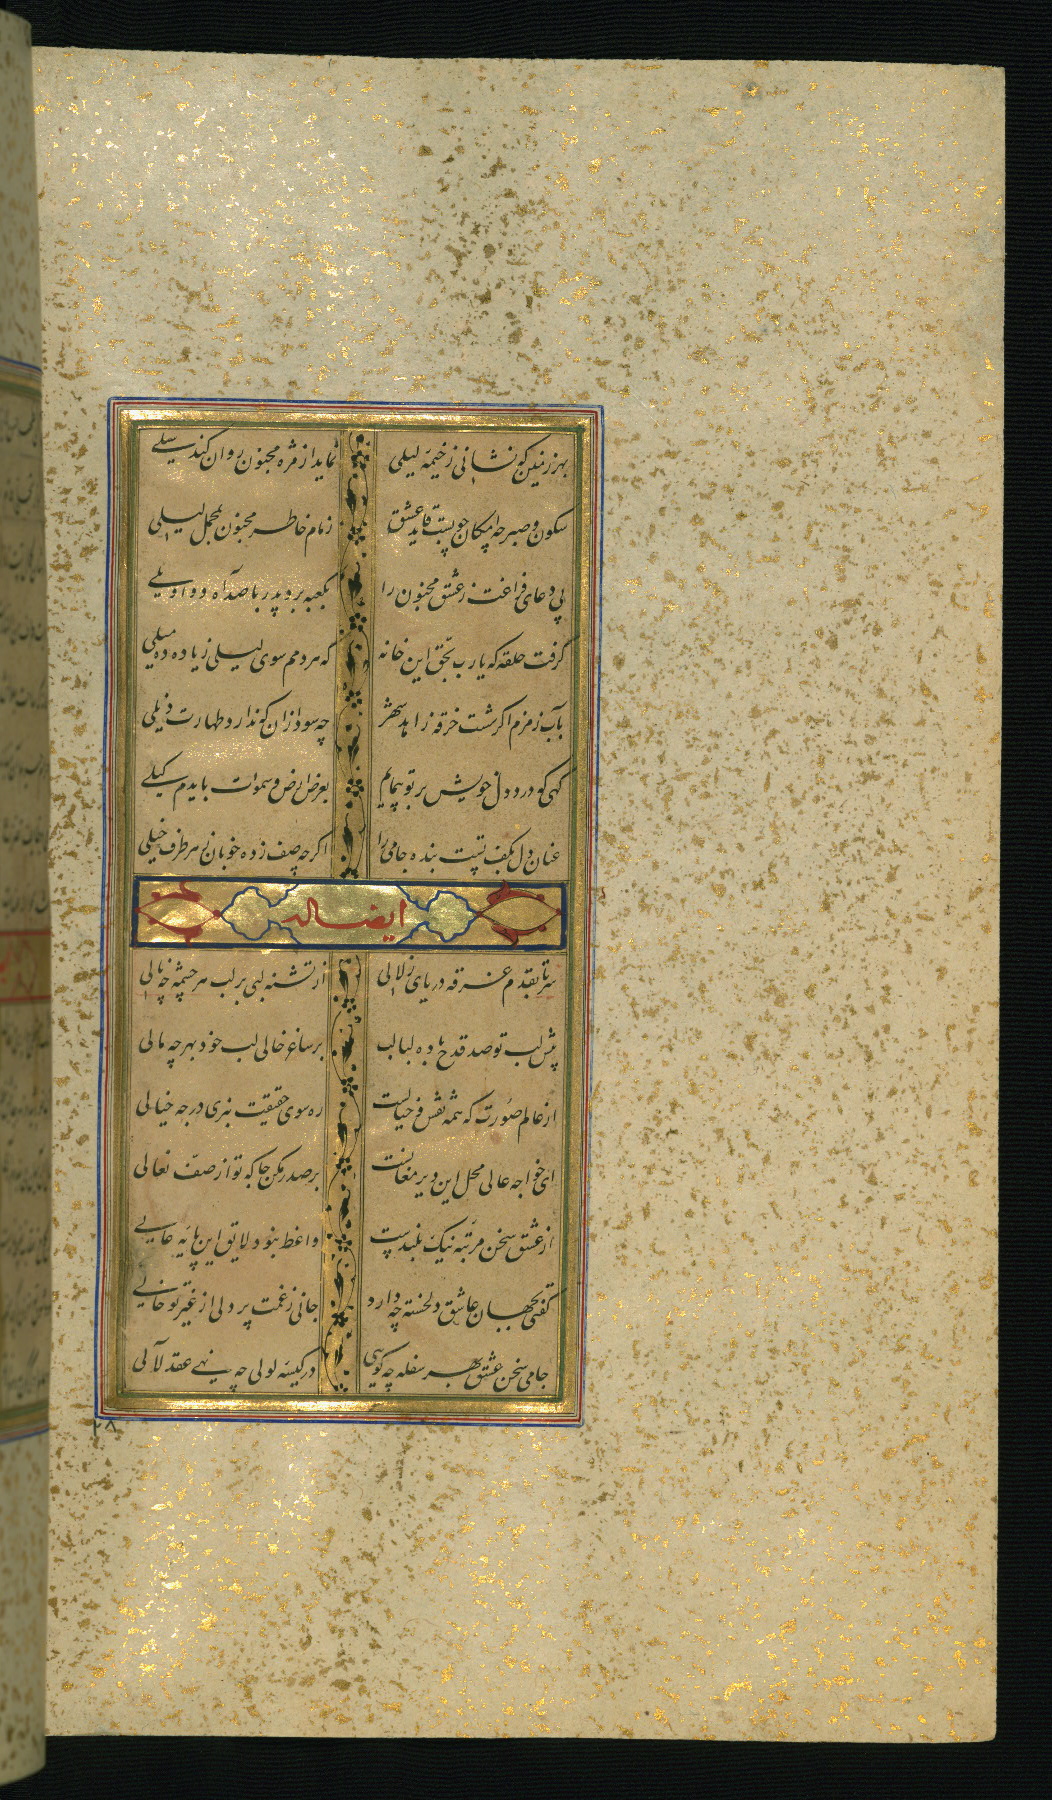 بهر زمین که نشانی ز خیمهٔ لیلی نماید از مژه مجنون روان کند سیلی
سکون و صبر چه امکان چو بست قاید عشق زمام خاطر مجنون بمحمل لیلی
پی دعای فراغت ز عشق مجنون را بکعبه برد پدر با صد آه و واویلی
گرفت حلقه که یارب بحق این خانه که هر دمم سوی لیلی زیاده ده میلی
بآب زمزم اگر شست خرقه زاهد شهر چه سود ازان که ندارد طهارت ذیلی
گهی که درد دل خویش بر تو پیمایم بعرض ارض و سموات بایدم کیلی
عنان دل بکف تست بنده جامی را اگرچه صف زده خوبان ز هر طرف خیلی
ایضا له
سر تا بقدم غرقه دریای زلالی از تشنه لبی بر لب هر چشمه چه نالی
پیش لب تو صد قدح باده لبالب بر ساغر خالی لب خود بهر چه مالی
از عالم صورت که همه نقش و خیالست ره سوی حقیقت نبری در چه خیالی
ای خواجه عالی محل این دیر مغانست بر صدر مکن جا که تو از صف نعالی
از عشق سخن مرتبه نیک بلندست واعظ نبود لایق این پایه عالی
گفتی بجهان عاشق دلخسته چه دارد جانی ز غمت پر دلی از غیر تو خالی
جامی سخن عشق بهر سفله چه گویی در کیسه لولی چه نهی عقد لآلی
۲۸